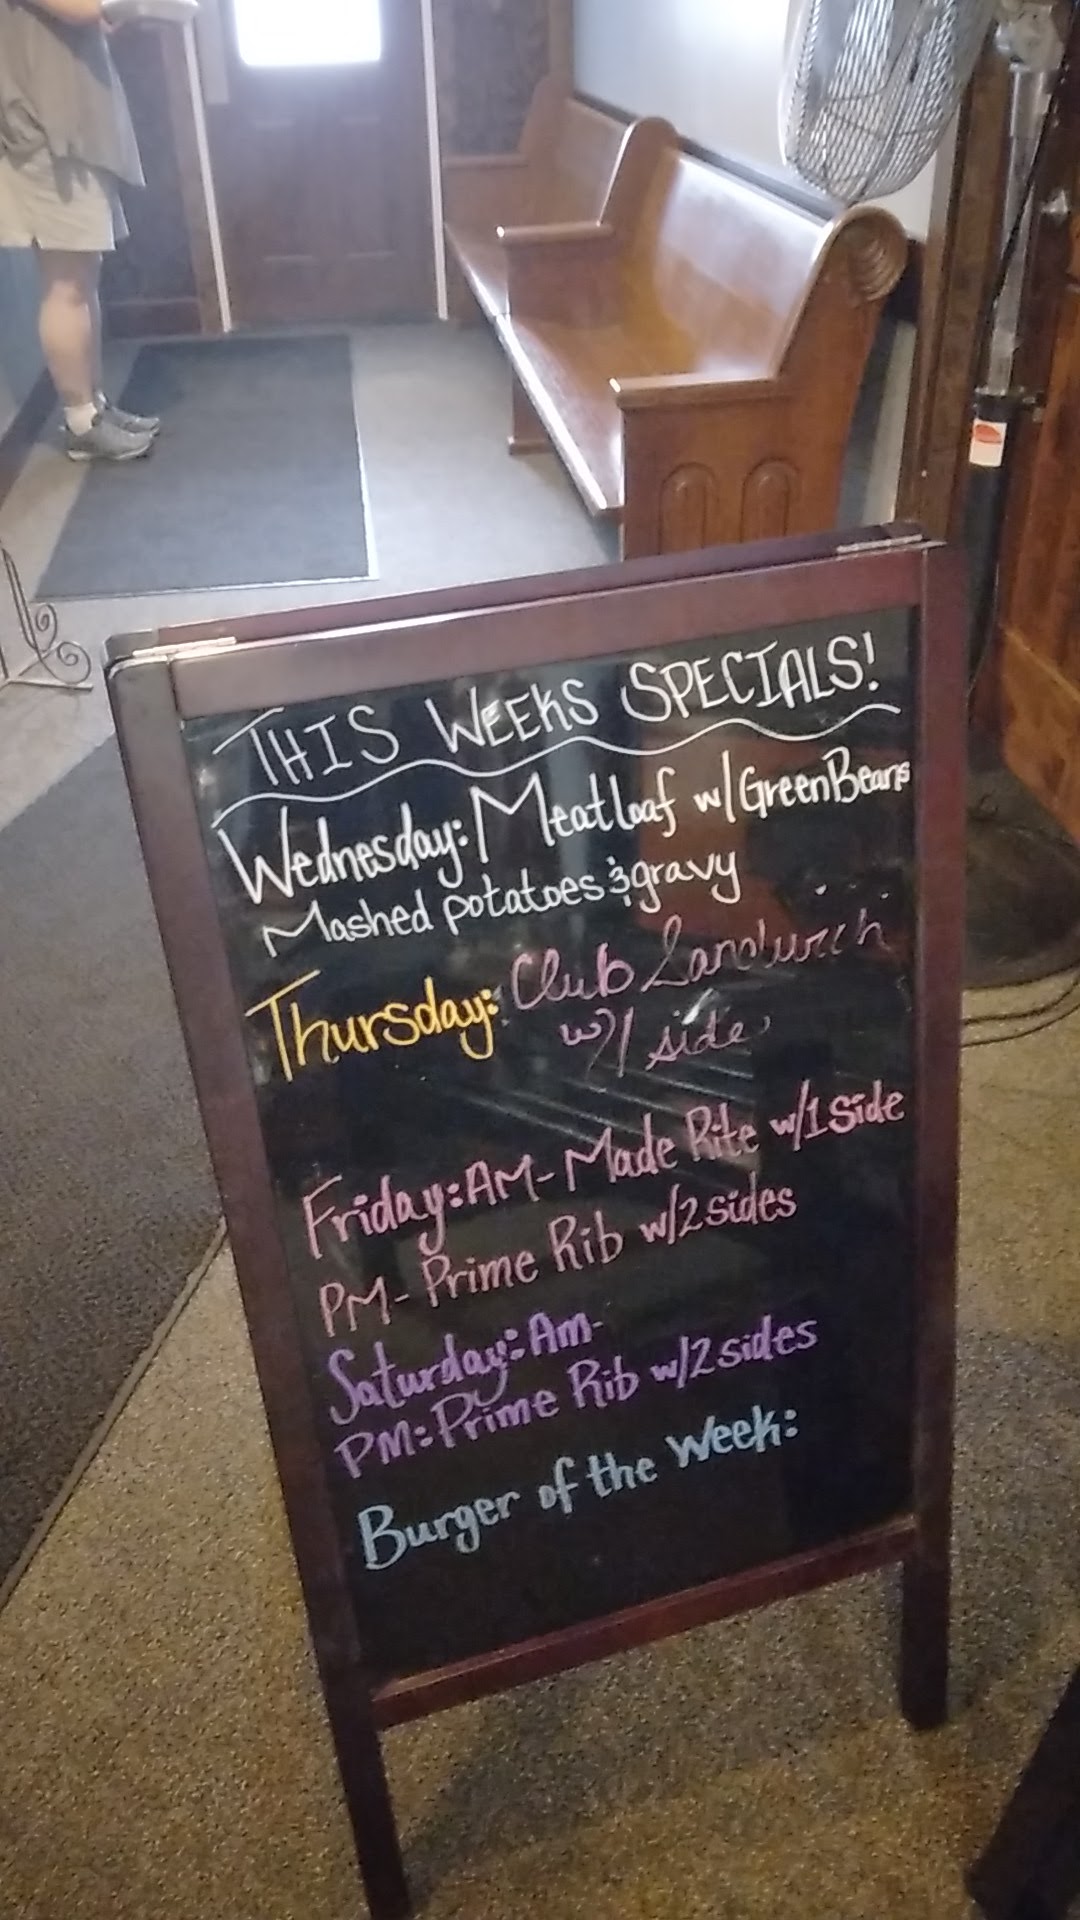 THIS WEEKS SPECIALS!
Wednesday: Meatloaf w/GreenBeans
Mashed potatoes & gravy
Thursday: Club Sandwich
w/1 side
Friday: AM- Made Rite w/1 Side
PM- Prime Rib w/2 sides
Saturday: Am-
PM: Prime Rib w/2 sides
Burger of the Week: